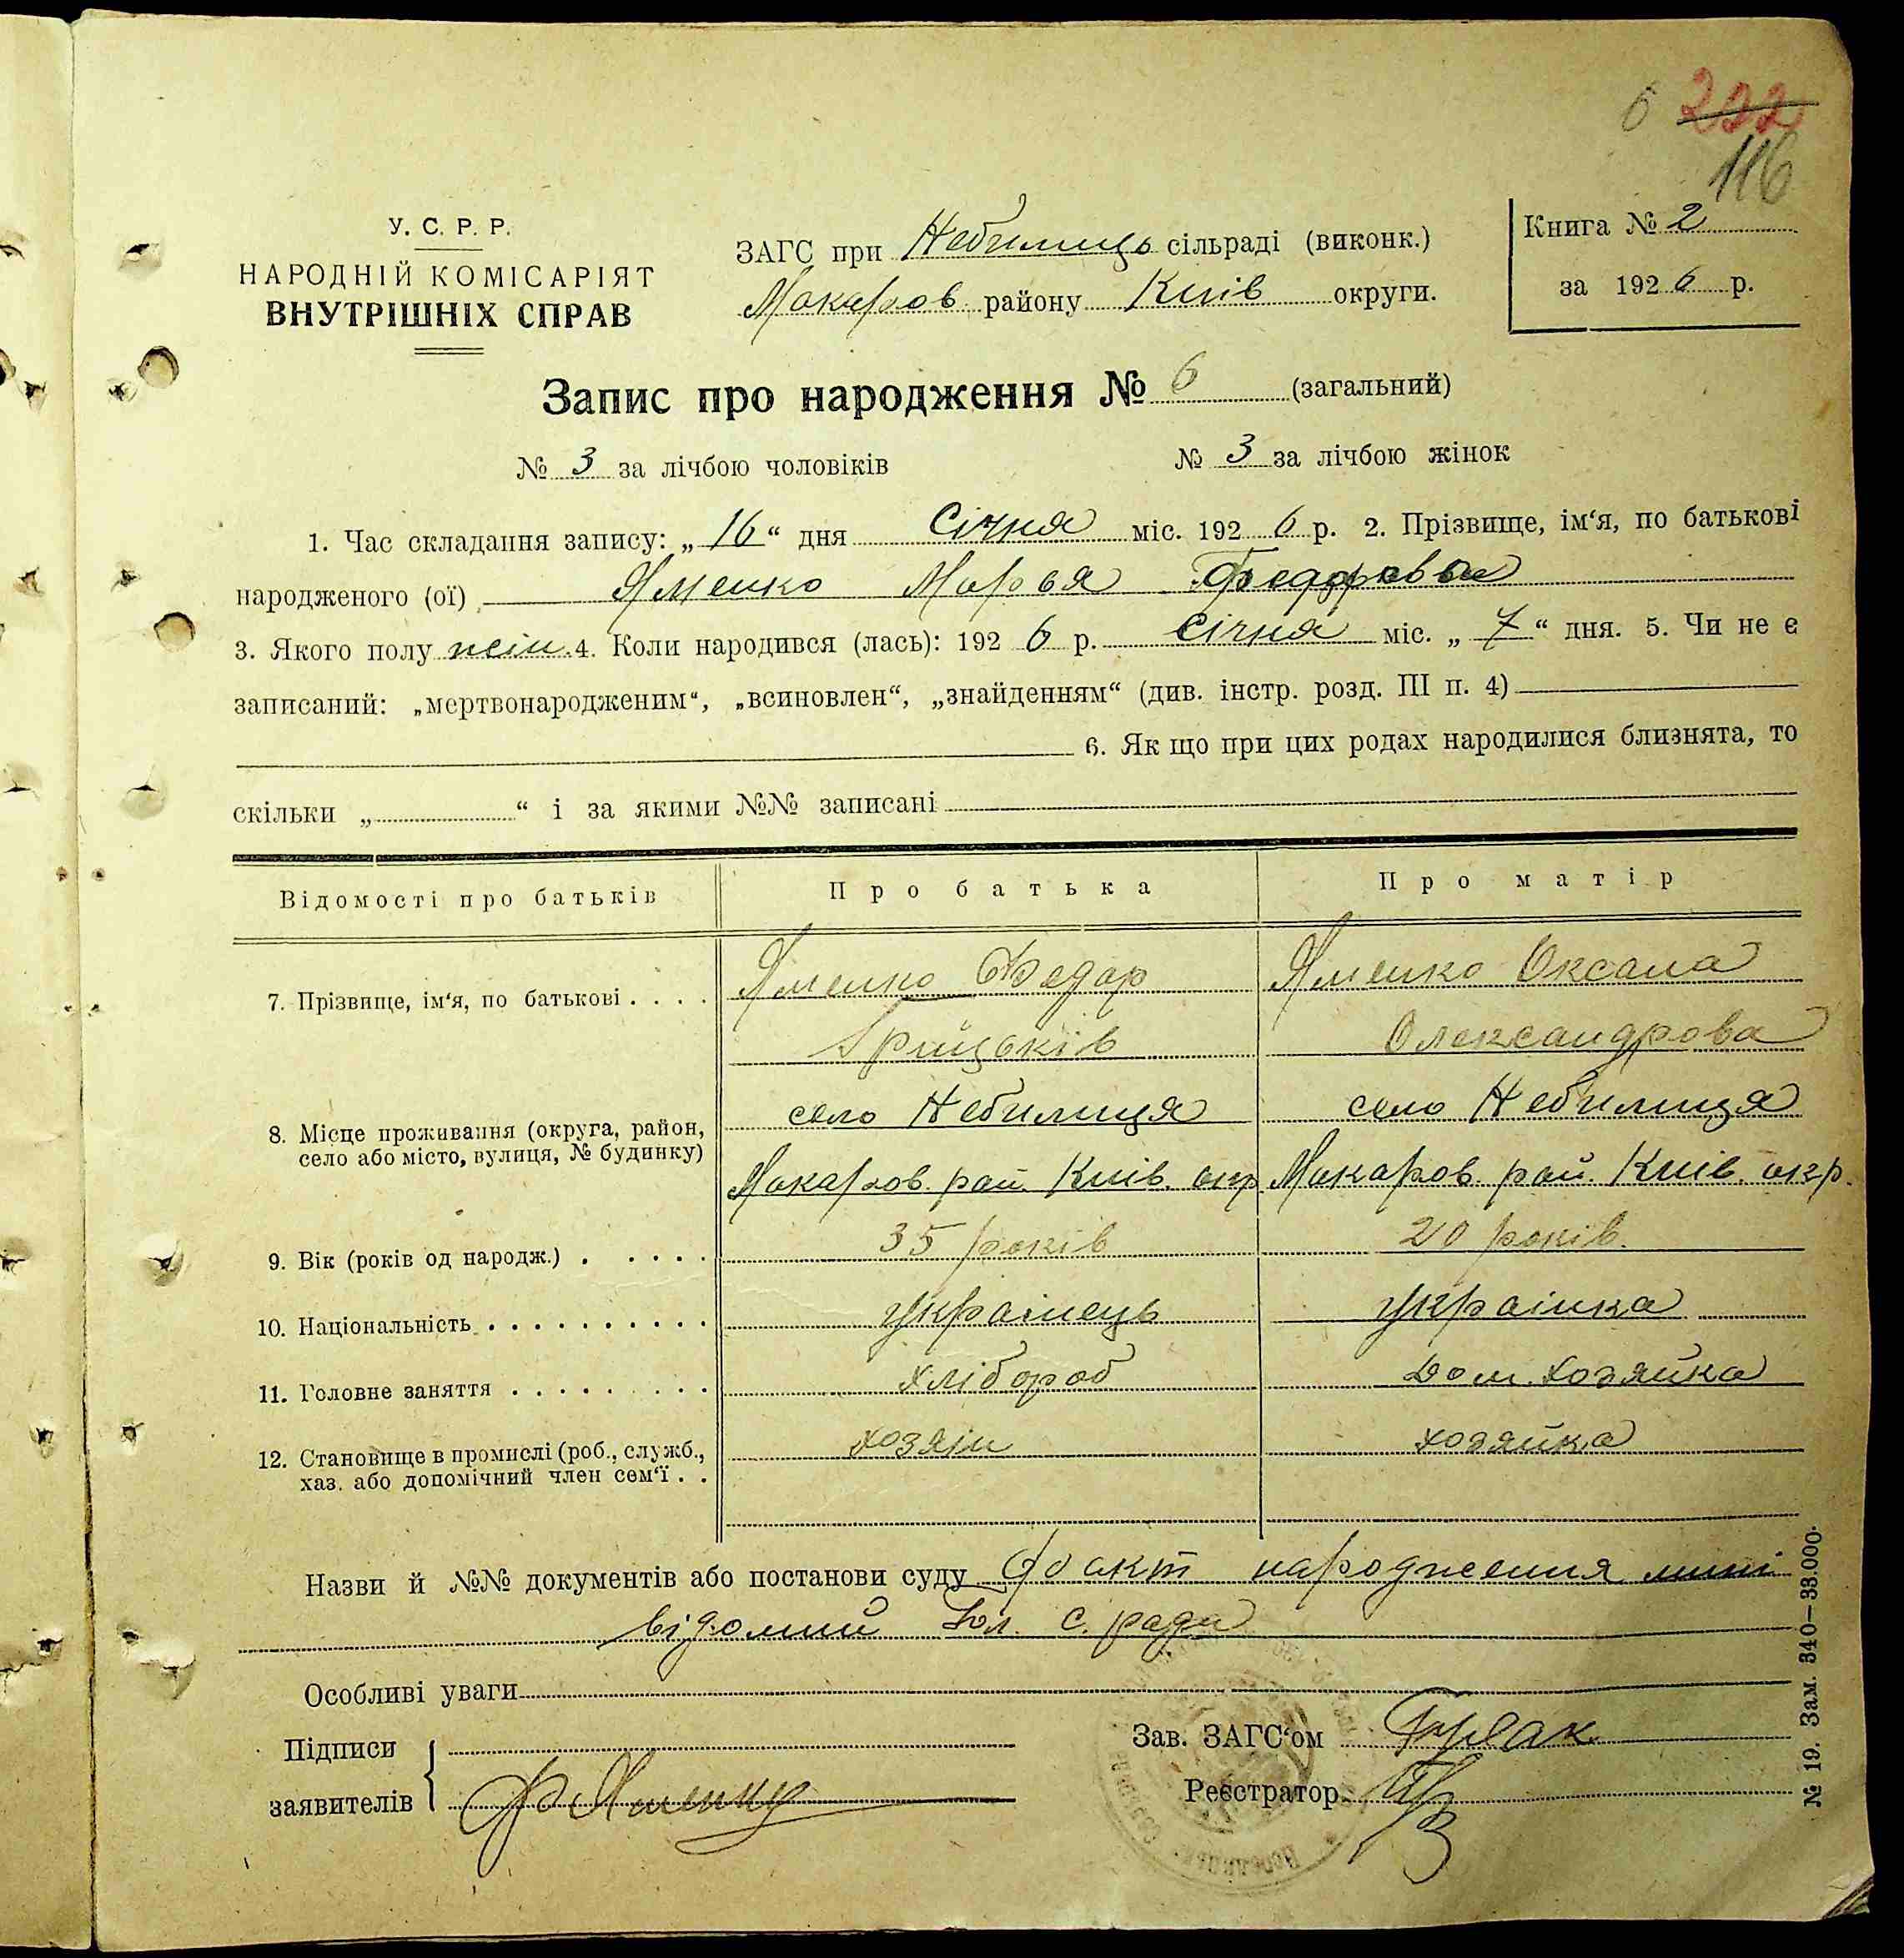 6 222
116
У. С. Р. Р.
НАРОДНІЙ КОМІСАРІЯТ
ВНУТРІШНІХ СПРАВ
ЗАГС при Небилиць сільраді (виконк.)
Макаров району Київ округи.
Книга № 2
за 1926 р.
Запис про народження № 6 (загальний)
№ 3 за лічбою чоловіків № 3 за лічбою жінок
1. Час складання запису: „16“ дня Січня міс. 1926 р. 2. Прізвище, ім‘я, по батькові
народженого (ої) Яменко Марья Федорова
3. Якого полу жін. 4. Коли народився (лась): 1926 р. Січня міс. „7“ дня. 5. Чи не є
записаний: „мертвонародженим“, „всиновлен“, „знайденням“ (див. інстр. розд. III п. 4)
6. Як що при цих родах народилися близнята, то
скільки „ “ і за якими №№ записані
Відомості про батьків Про батька Про матір
7. Прізвище, ім‘я, по батькові . . . . Яменко Федор Яменко Оксана
Грицьків Олександрова
8. Місце проживання (округа, район, село Небилиця село Небилиця
село або місто, вулиця, № будинку) Макаров. рай. Київ. окр. Макаров. рай. Київ. окр.
9. Вік (років од народж.) . . . . . 35 років 20 років.
10. Національність . . . . . . . . . . українець українка
11. Головне заняття . . . . . . . . . хлібороб Дом. хозяйка
12. Становище в промислі (роб., служб., хозяін хозяйка
хаз. або допомічний член сем‘ї . .
Назви й №№ документів або постанови суду факт народження мині
відомий Гол. с. ради
Особливі уваги
Підписи
заявителів Ф Яменко
Зав. ЗАГС‘ом
Реєстратор
№ 19. Зам. 340—33.000.